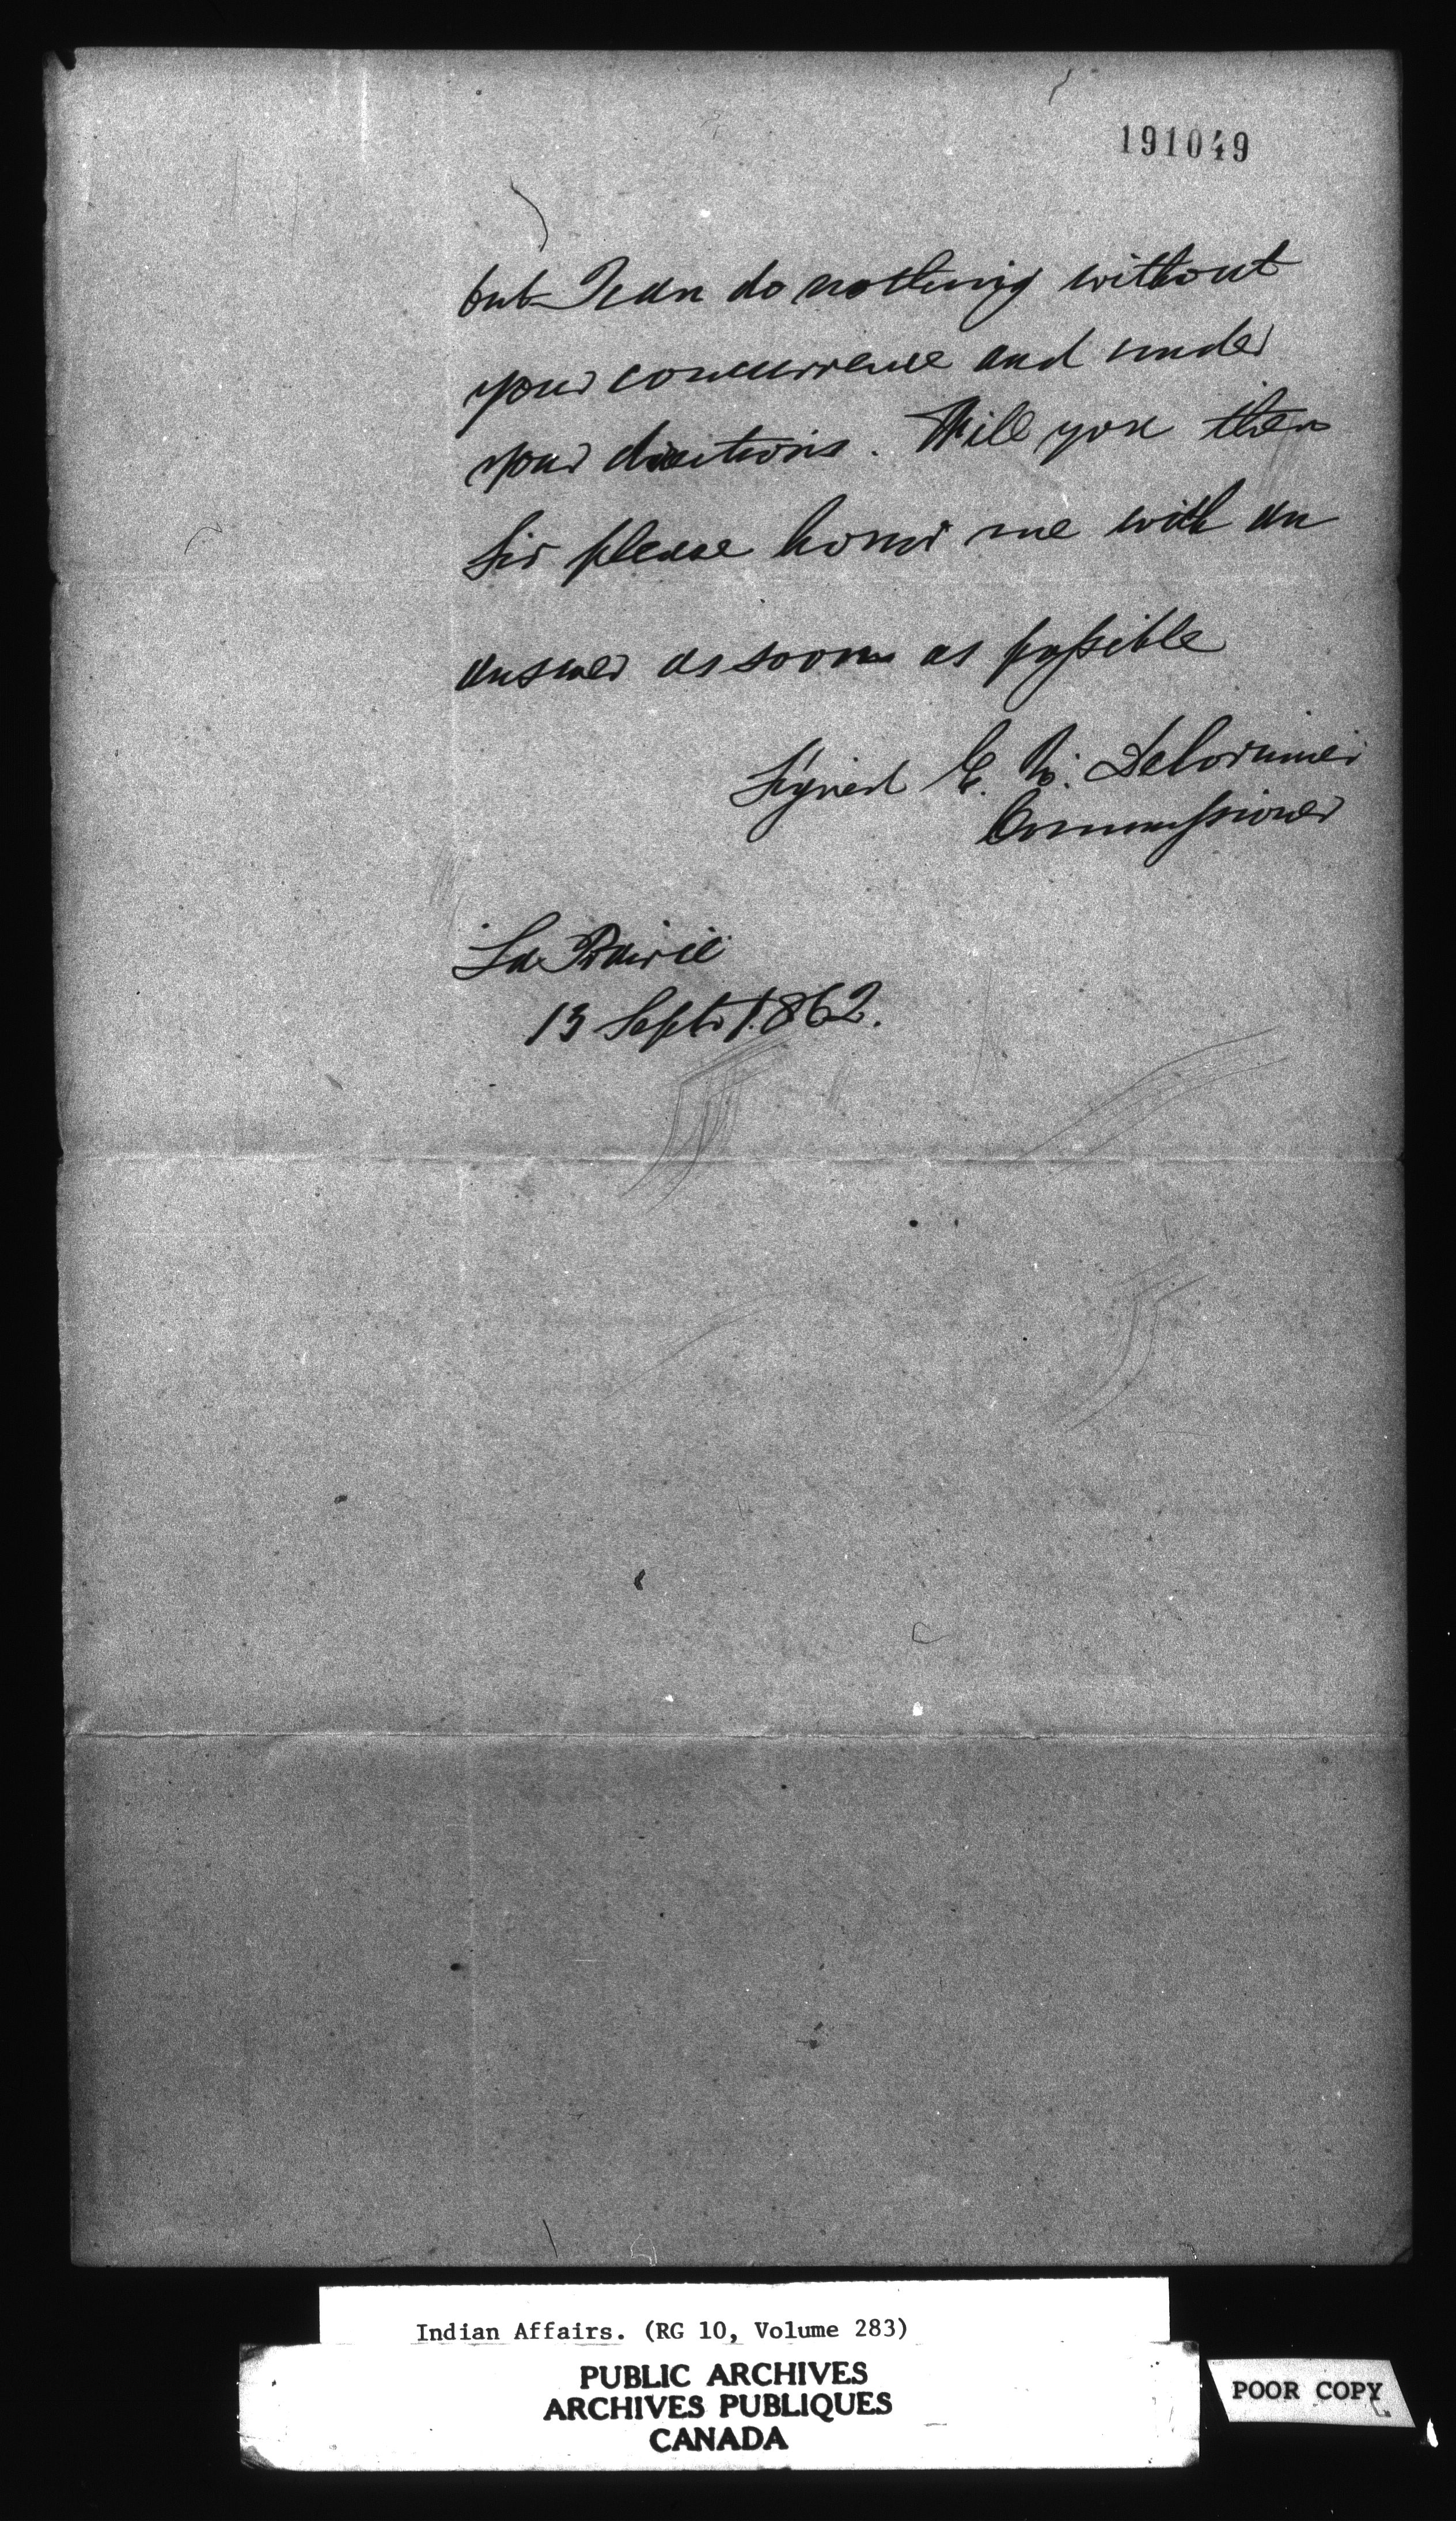 191049
but I can do nothing without
your concurrence and under
your directions. Will you then
Sir please honor me with an
answer as soon as possible
Signed E. N. DeLorimier
Commissioner
La Prairie
13 Sept 1862.
Indian Affairs. (RG 10, Volume 283)
PUBLIC ARCHIVES
ARCHIVES PUBLIQUES
CANADA
POOR COPY